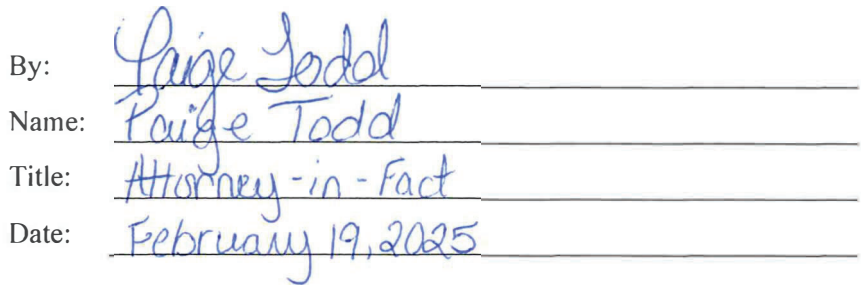 By: Paige Todd
Name: Paige Todd
Title: Attorney-in-Fact
Date: February 19, 2025